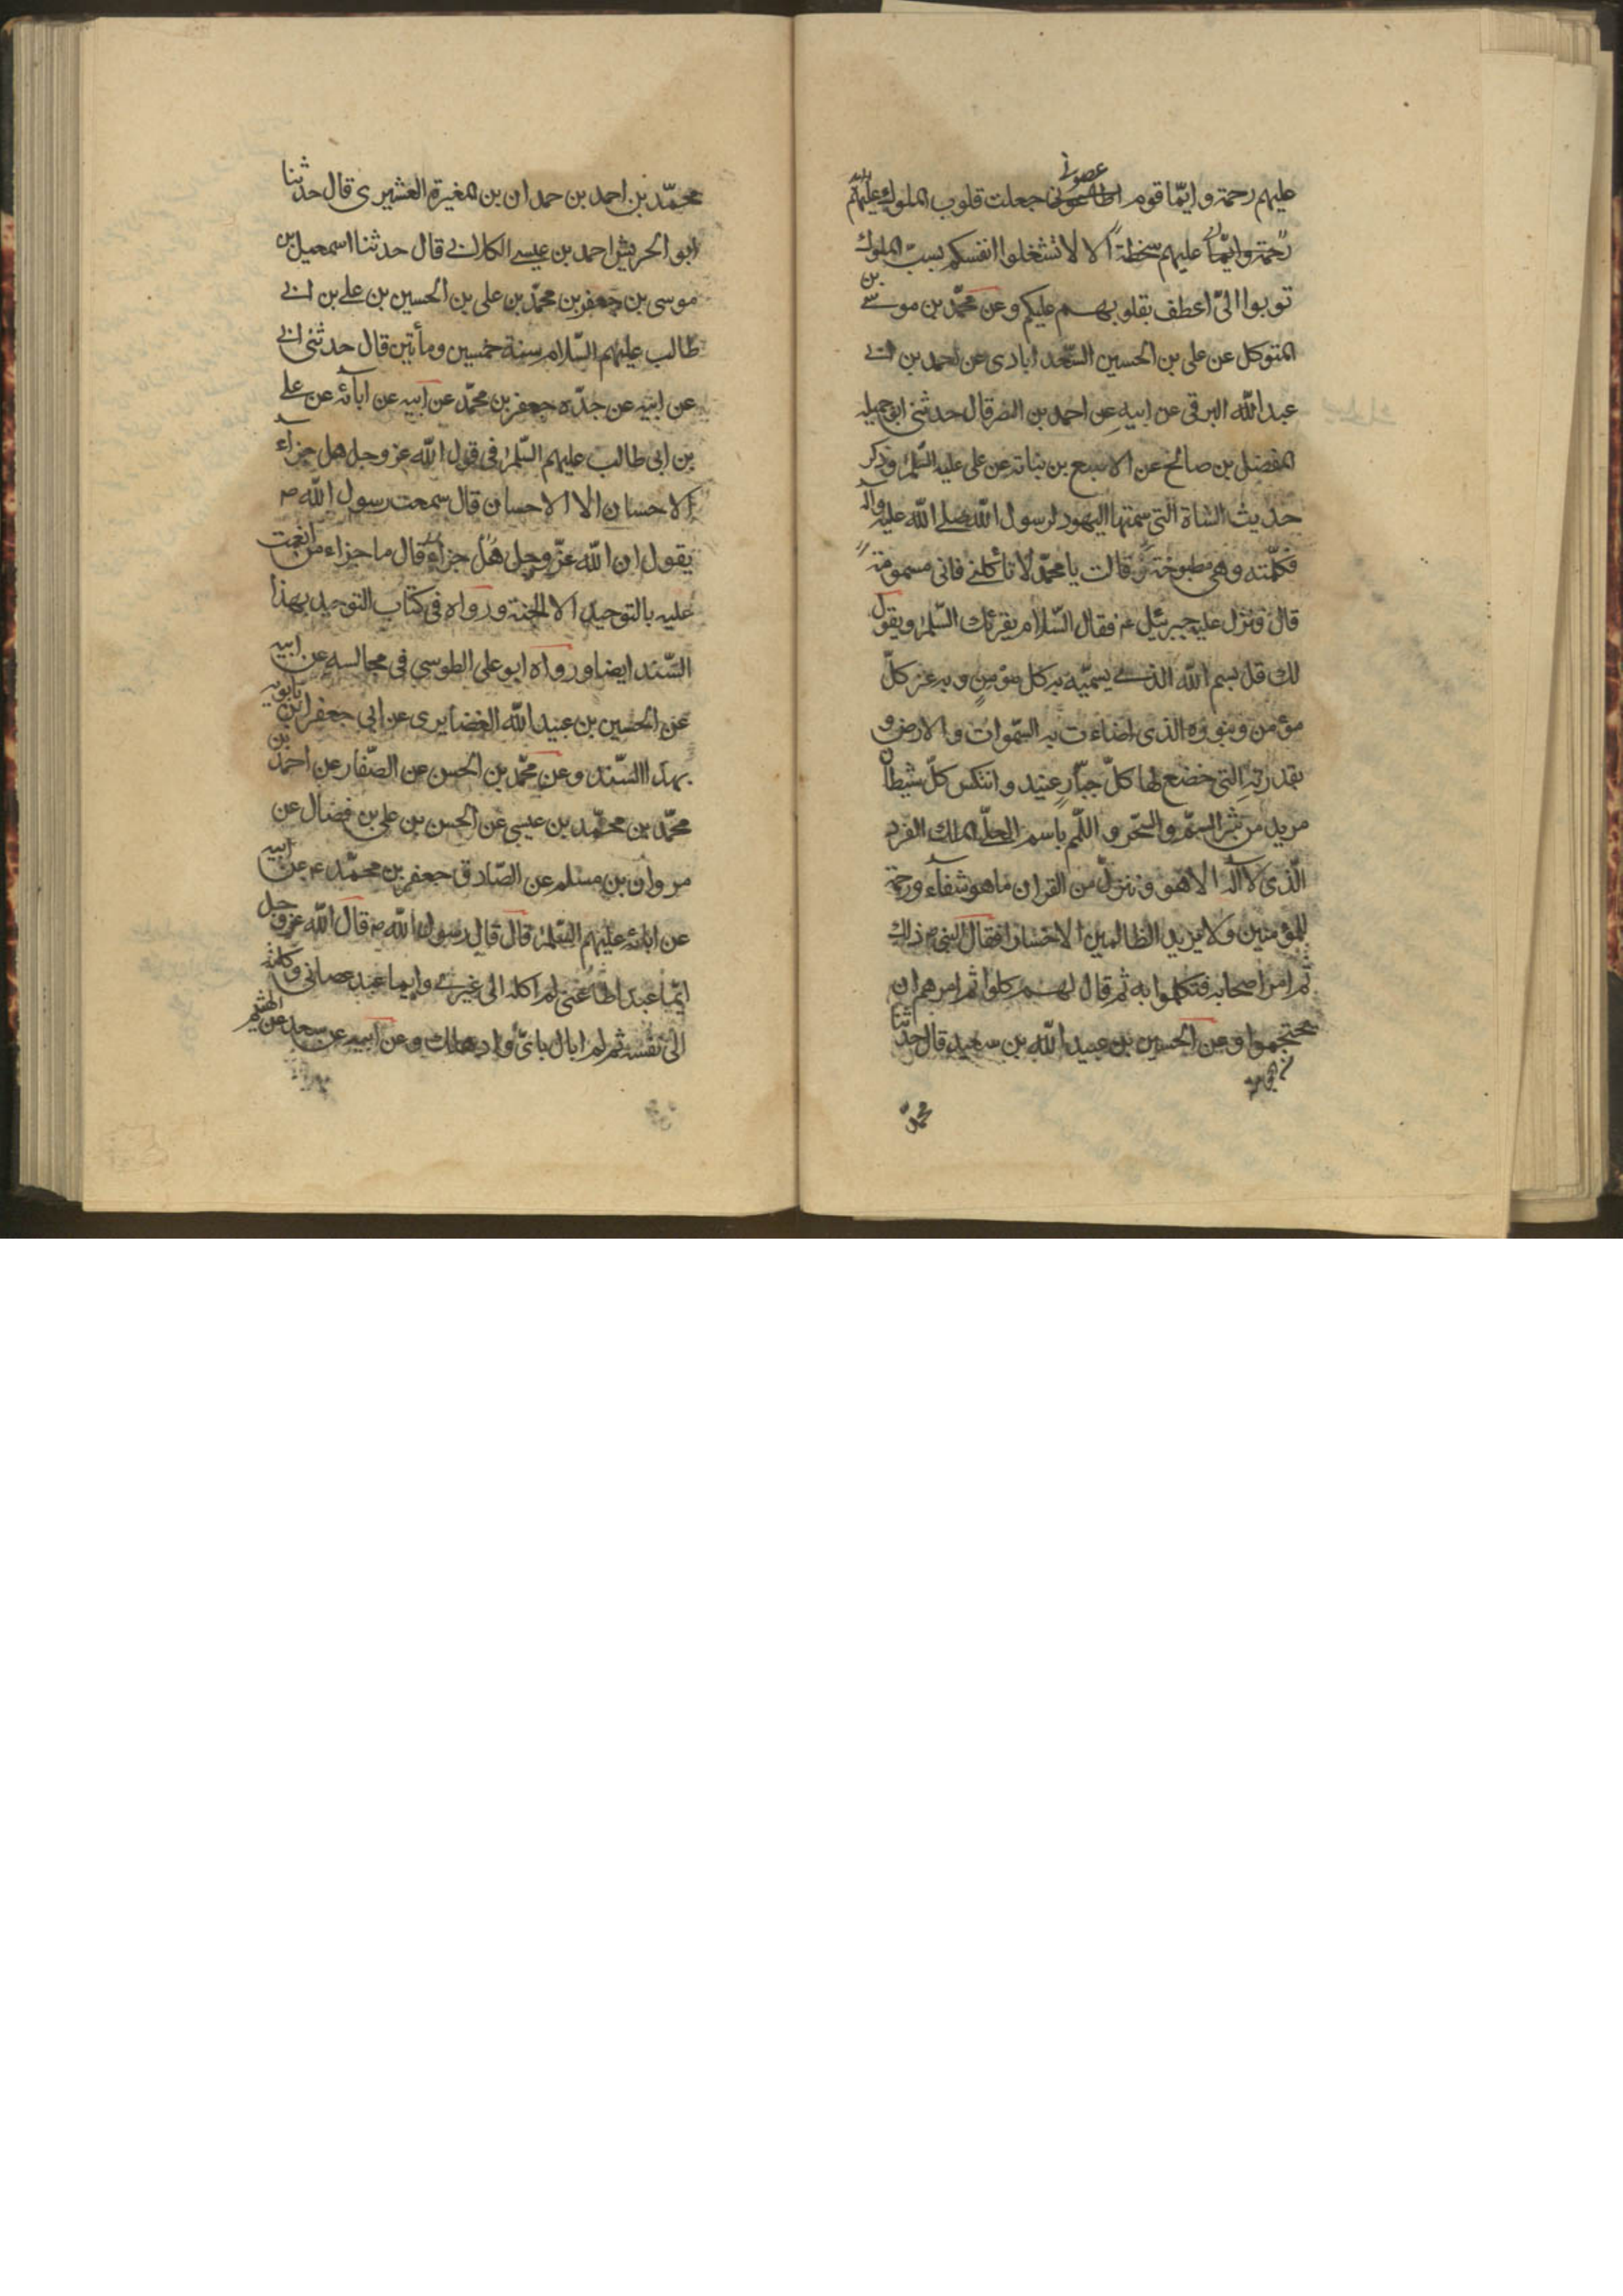 عليهم رحمة وايّما قوم اطاعونى عصونى جعلت قلوب الملوك عليهم
رحمة وايّما عليهم سخطة الا لا تشغلوا انفسكم بسبّ الملوك
توبوا الىّ اعطف بقلوبهم عليكم وعن محمّد بن موسى بن
المتوكل عن على بن الحسين السّعد ابادى عن احمد بن ابى
عبد الله البرقى عن ابيه عن احمد بن النضر قال حدثنى ابو جميله
المفضل بن صالح عن الاصبغ بن نباتة عن على عليه السّلم وذكر
حديث الشاة التى سمتها اليهود لرسول الله صلى الله عليه وآله
فكلّمته وهى مطبوخة قالت يا محمّد لا تأكلنى فانى مسمومة
قال فنزل عليه جبرئيل ع فقال السّلام يقرئك السّلم ويقول
لك قل بسم الله الذى يسمّيه به كل مؤمن وبه عز كلّ
مؤمن وبنوره الذى اضاءت به السّموات والارض و
بقدرته التى خضع لها كلّ جبّار عنيد وانتكس كلّ شيطان
مريد من شر السمّ والسّحر واللّمم باسم العلىّ الملك الفرد
الّذى لا آله الا هو وننزل من القران ما هو شفآء ورحمة
للمؤمنين ولا يزيد الظالمين الا خسارا فقال النبى ص ذلك
ثم امر اصحابه فتكلموا به ثم قال لهم كلوا ثم امرهم ان
يحتجموا وعن الحسين بن عبيد الله بن سعيد قال حدّثنا
محمّد
محمّد بن احمد بن حمدان بن المغيرة القشيرى قال حدثنا
ابو الحريش احمد بن عيسى الكلابى قال حدثنا اسمعيل بن
موسى بن جعفر بن محمّد بن على بن الحسين بن على بن ابى
طالب عليهم السّلام سنة خمسين ومأتين قال حدثنى ابى
عن ابيه عن جدّه جعفر بن محمّد عن ابيه عن ابآئه عن على
بن ابى طالب عليهم السّلم فى قول الله عز وجل هل جزآء
الاحسان الا الاحسان قال سمعت رسول الله ص
يقول ان الله عزّ وجل هل جزاء قال ما جزاء من انعمت
عليه بالتوحيد الا الجنة ورواه فى كتاب التوحيد بهذا
السّند ايضا ورواه ابو على الطوسى فى مجالسه عن ابيه
عن الحسين بن عبيد الله الغضايرى عن ابى جعفر ابن بابويه
بهذا السّند وعن محمّد بن الحسن عن الصّفار عن احمد بن
محمّد بن محمّد بن عيسى عن الحسن بن على بن فضال عن
مروان بن مسلم عن الصّادق جعفر بن محمّد ع عن ابيه
عن ابائه عليهم السّلم قال قال رسول الله ص قال الله عزوجل
ايّما عبد اطاعنى لم اكله الى غيرى وايما عبد عصانى وكلته
الى نفسه ثم لم ابال باىّ واد هلك وعن ابيه عن سعد عن الهيثم